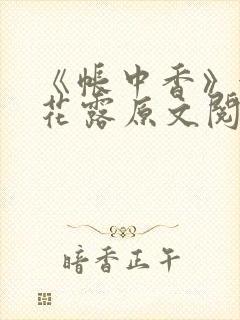 《帐中香》
花露原文阅
暗香正午